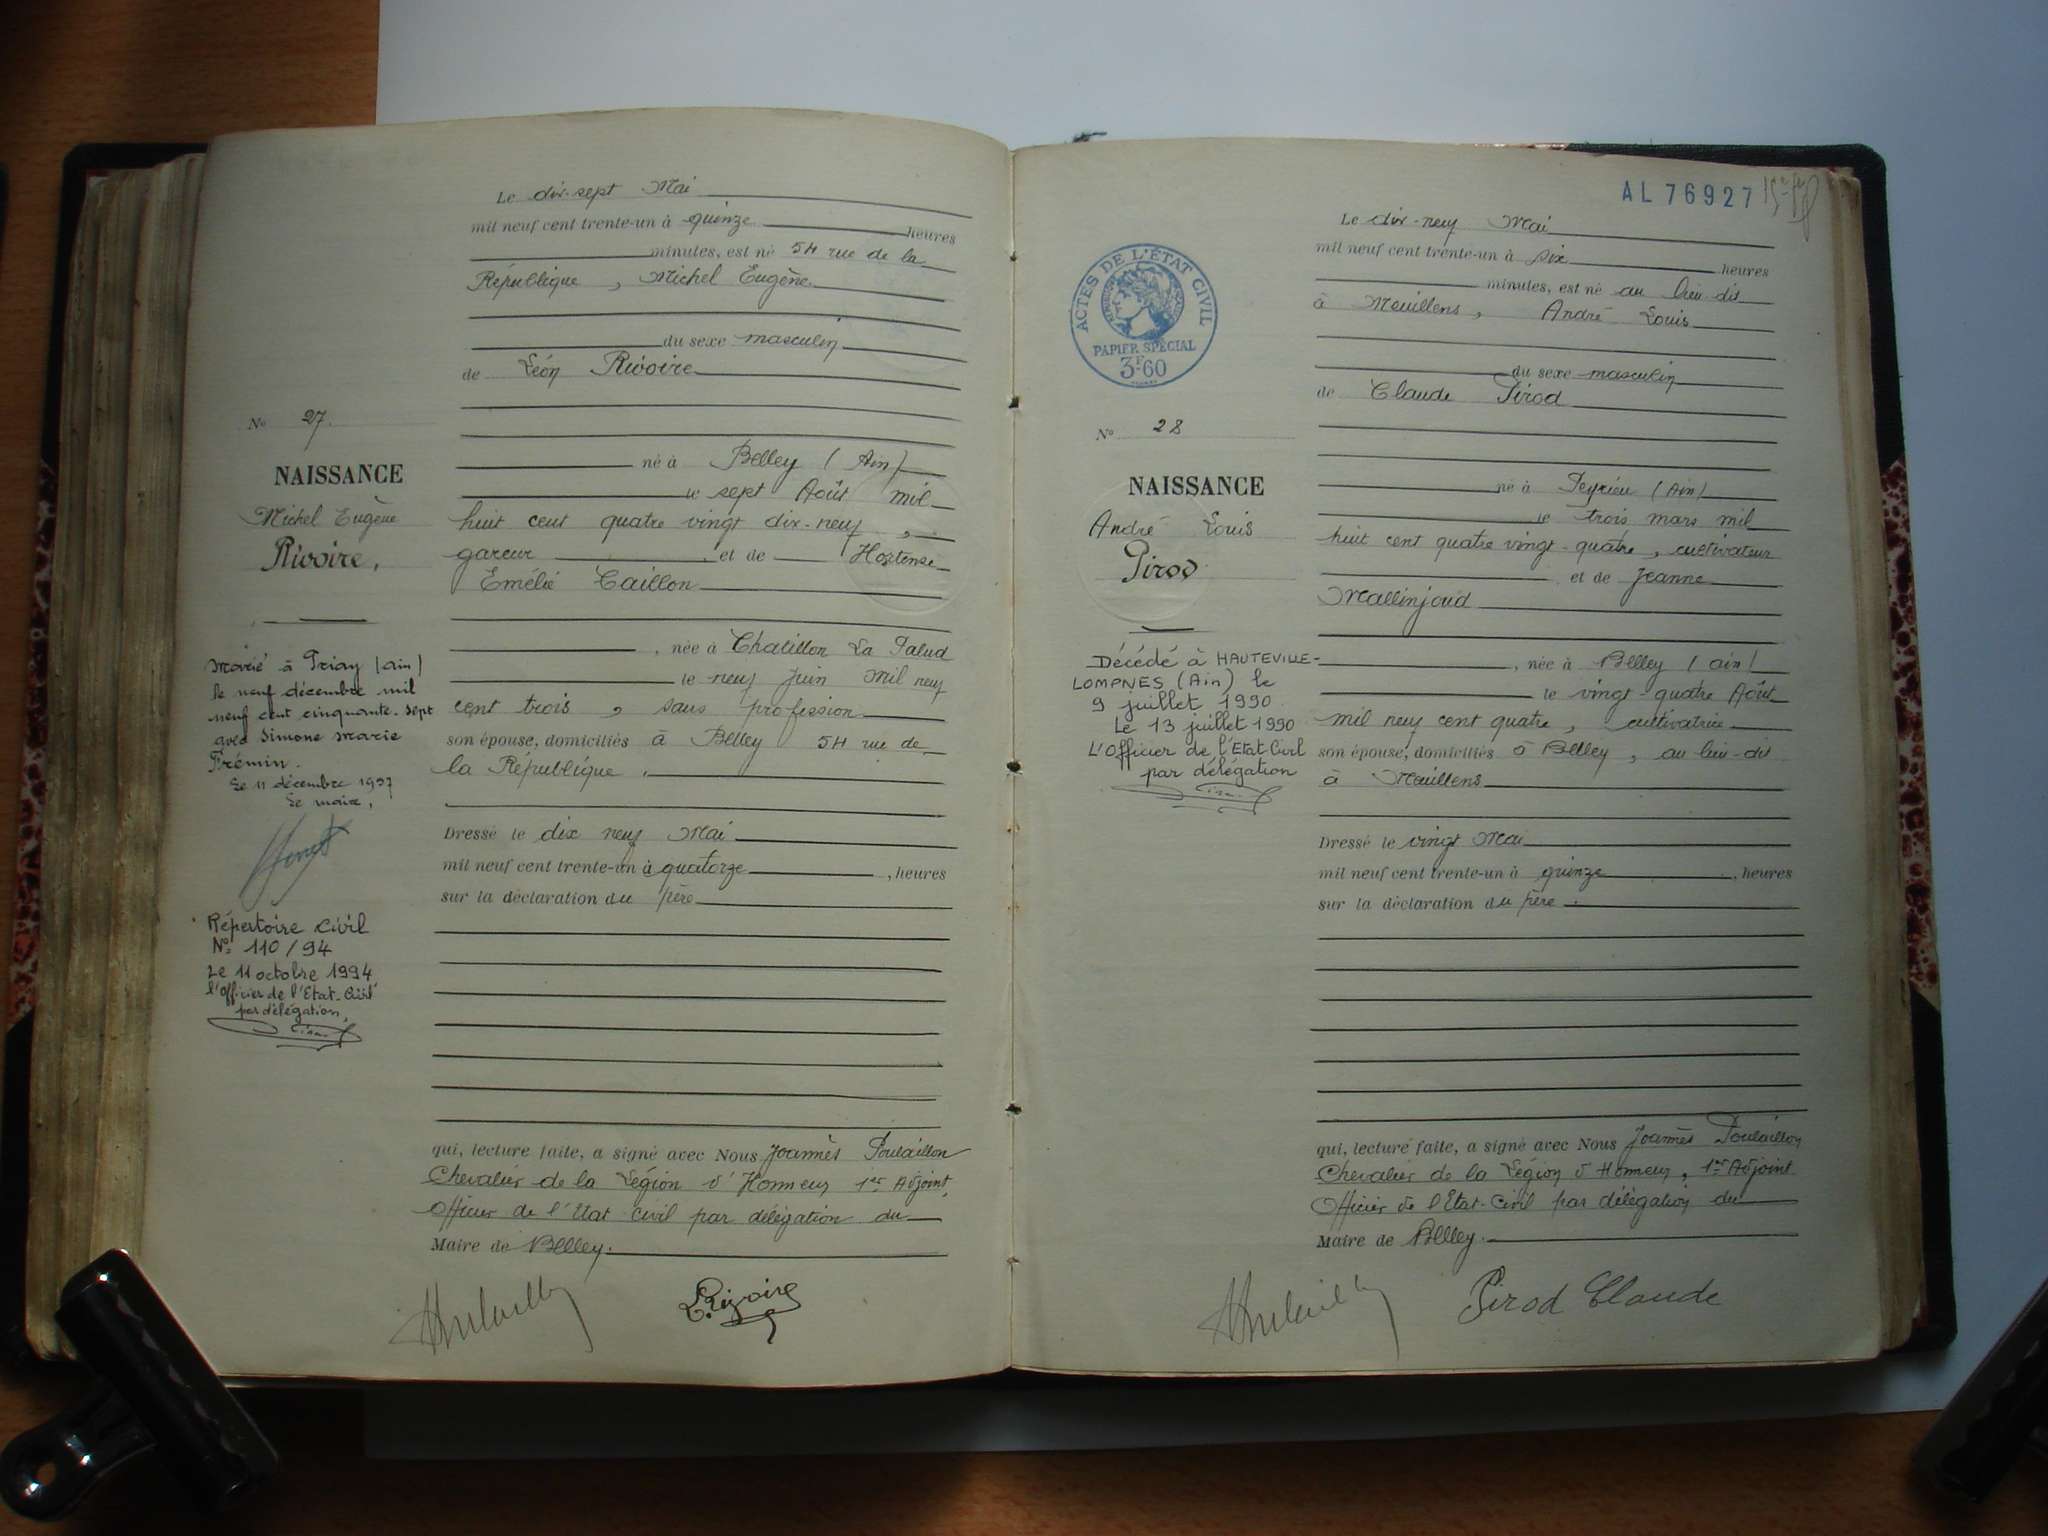 Le dix-sept Mai
mil neuf cent trente-un à quinze heures
minutes, est né 54 rue de la
République, Michel Eugène
du sexe masculin
de Léon Rivoire
né à Belley (Ain)
le sept Août mil
huit cent quatre vingt dix-neuf,
gareur et de Hortense
Emélie Caillon
, née à Chatillon La Palud
le neuf Juin mil neuf
cent trois, sans profession
son épouse, domiciliés à Belley 54 rue de
la République.
Dressé le dix neuf Mai
mil neuf cent trente-un à quatorze, heures
sur la déclaration du père
qui, lecture faite, a signé avec Nous Joannès Poulaillon
Chevalier de la Légion d'Honneur 1er Adjoint,
Officier de l'Etat civil par délégation du
Maire de Belley.
L. Rivoire
No 27.
NAISSANCE
Michel Eugène
Rivoire,
Marié à Priay (Ain)
le neuf décembre mil
neuf cent cinquante-sept
avec Simone Marie
Frémin.
Le 11 décembre 1957
Le maire,
Répertoire Civil
No 110/94
Le 11 octobre 1994
l'Officier de l'Etat-Civil
par délégation,
AL 76927
ACTES DE L'ÉTAT CIVIL
PAPIER SPÉCIAL
3F60
Le dix-neuf Mai
mil neuf cent trente-un à six heures
minutes, est né au lieu dit
à Meuillens, André Louis
du sexe masculin
de Claude Pirod
né à Peyrieu (Ain)
le trois mars mil
huit cent quatre vingt-quatre, cultivateur
et de Jeanne
Mallinjoud
, née à Belley (Ain)
le vingt-quatre Août
mil neuf cent quatre, cultivatrice
son épouse, domiciliés à Belley, au lieu-dit
à Meuillens
Dressé le vingt Mai
mil neuf cent trente-un à quinze, heures
sur la déclaration du père.
qui, lecture faite, a signé avec Nous Joannès Poulaillon
Chevalier de la Légion d'Honneur, 1er Adjoint
Officier de l'Etat-Civil par délégation du
Maire de Belley.
Pirod Claude
No 28
NAISSANCE
André Louis
Pirod
Décédé à HAUTEVILLE-
LOMPNES (Ain) le
9 juillet 1990
Le 13 juillet 1990
L'Officier de l'Etat-Civil
par délégation